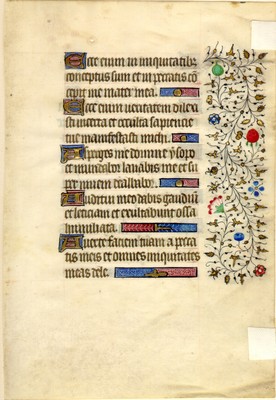 Ecce enim in iniquitatibz
conceptus sum et in peccatis con
cepit me mater mea.
Ecce enim veritatem dilexi
sti incerta et occulta sapiencie
tue manifestasti michi.
Asperges me domine ysopo
et mundabor lavabis me et su
per nivem dealbabor.
Auditui meo dabis gaudiu
et leticiam et exultabunt ossa
humiliata.
Averte faciem tuam a pecca
tis meis et omnes iniquitates
meas dele.